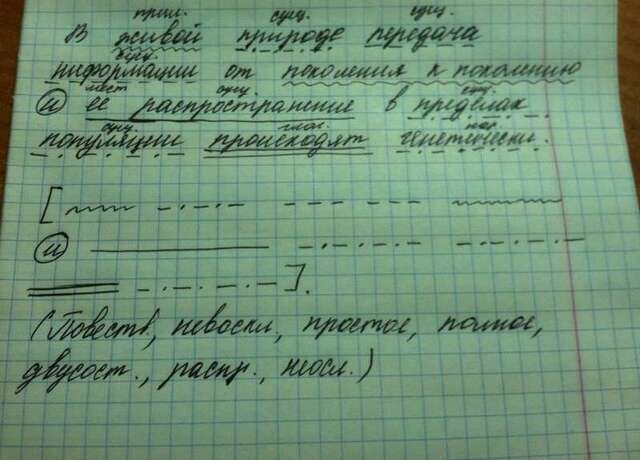 прил. сущ. сущ.
В живой природе передача
сущ.
информации от поколения к поколению
мест сущ. сущ.
и ее распространение в пределах
сущ. глаг. нар.
популяции происходят генетически.
[
и
].
(Повеств, невоскл, простое, полное,
двусост., распр., неосл.)